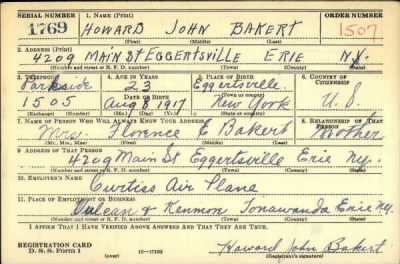 SERIAL NUMBER 1. NAME (Print) ORDER NUMBER
1769 HOWARD JOHN BAKERT 1507
(First) (Middle) (Last)
2. ADDRESS (Print)
4209 MAIN ST EGGERTSVILLE ERIE N.Y.
(Number and street or R. F. D. number) (Town) (County) (State)
3. TELEPHONE 4. AGE IN YEARS 5. PLACE OF BIRTH 6. COUNTRY OF CITIZENSHIP
Parkside 23 Eggertsville
DATE OF BIRTH (Town or county)
1505 Aug 8 1917 New York U.S.
(Exchange) (Number) (Mo.) (Day) (Yr.) (State or country)
7. NAME OF PERSON WHO WILL ALWAYS KNOW YOUR ADDRESS 8. RELATIONSHIP OF THAT PERSON
Mrs. Florence E Bakert Mother
(Mr., Mrs., Miss) (First) (Middle) (Last)
9. ADDRESS OF THAT PERSON
4209 Main St Eggertsville Erie Ny.
(Number and street or R. F. D. number) (Town) (County) (State)
10. EMPLOYER'S NAME
Curtiss Air Plane
11. PLACE OF EMPLOYMENT OR BUSINESS
Vulcan + Kenmore Tonawanda Erie Ny.
(Number and street or R. F. D. number) (Town) (County) (State)
I AFFIRM THAT I HAVE VERIFIED ABOVE ANSWERS AND THAT THEY ARE TRUE.
REGISTRATION CARD
D. S. S. Form 1 Howard John Bakert
(Registrant's signature)